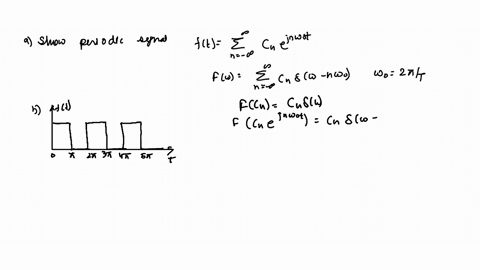 a) Show periodic signal f(t) = ∑_{n=-∞}^{∞} C_n e^{jnω_0t}
F(ω) = ∑_{n=-∞}^{∞} C_n δ(ω - nω_0) ω_0 = 2π/T
F(C_n) = C_n δ(ω)
F(C_n e^{jnω_0t}) = C_n δ(ω -
b) f(t)
0 π 2π 3π 4π 5π